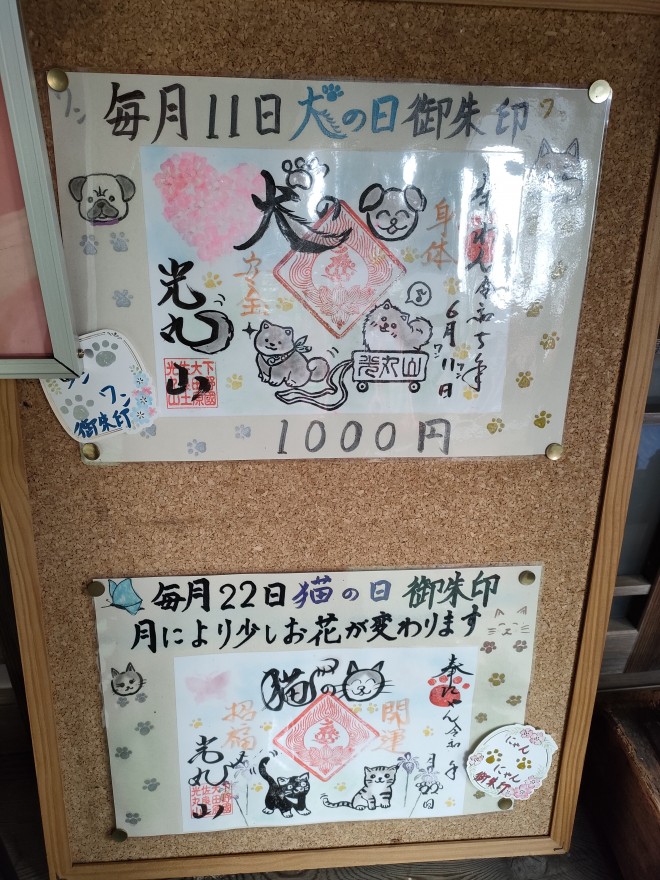 ワン
毎月11日犬の日御朱印
ワン
犬の
身体
安全
光丸
山
6月11日
ワンワン
光丸山
1000円
ワン
ワン
御朱印
毎月22日猫の日御朱印
月により少しお花が変わります
猫の
奉にゃん令和 年
月22日
開運
招福
光丸
山
にゃん
にゃん
御朱印